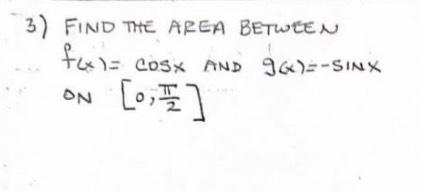 3) FIND THE AREA BETWEEN
f(x)= COSX AND g(x)=-SINX
ON [0,π/2]